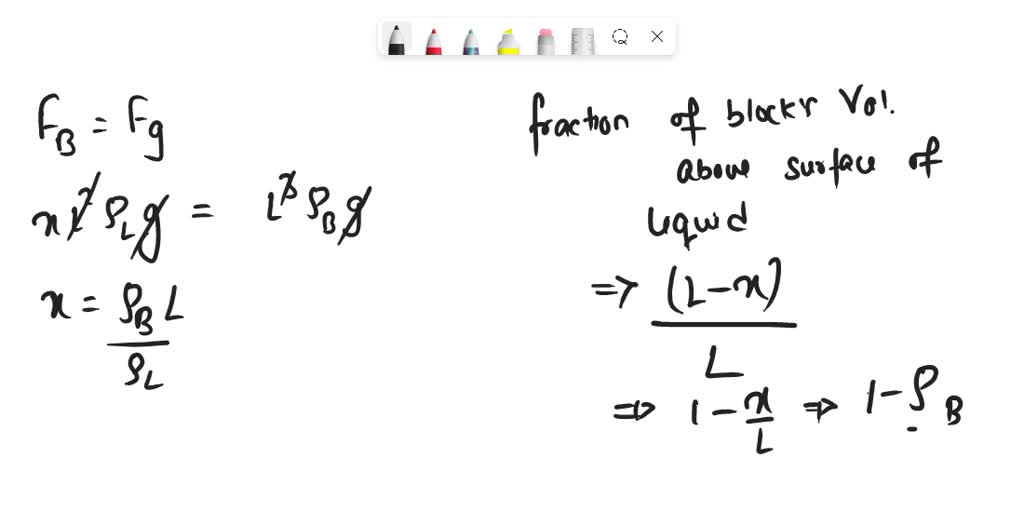 F_B = F_g
x L² ρ_L g = L³ ρ_B g
x = ρ_B L / ρ_L
fraction of blocks Vol.
above surface of
liquid
⇒ (L-x) / L
⇒ 1 - x/L ⇒ 1 - ρ_B